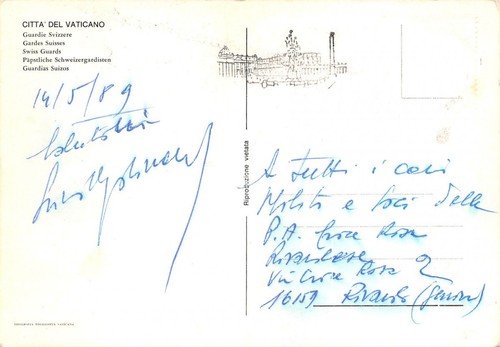 CITTA' DEL VATICANO
Guardie Svizzere
Gardes Suisses
Swiss Guards
Päpstliche Schweizergardisten
Guardias Suizos
14/5/89
Riproduzione vietata
A tutti i cari
Militi e Soci della
P.A. Croce Rosa
Rivarolese
Via Croce Rosa 2
16159 Rivarolo (Genova)